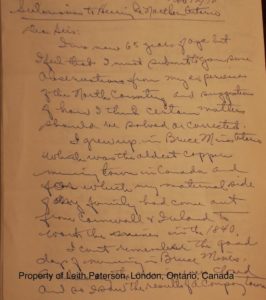 Submission to Hearing Ontario
Dear Sirs:
I am now 65 years of age but
I feel that I must submit to you some
observations from my experiences
of the North Country and suggestions
of how I think certain matters
should be solved or corrected.
I grew up in Bruce Mines Ontario
which was the oldest copper
mining town in Canada and
for which my maternal side
of my family had come out
from Cornwall & Ireland to
work the mines in the 1840.
I can't remember the good
day of mining in Bruce Mines
Property of Leith Peterson, London, Ontario, Canada
and so I saw the results of a Company Town